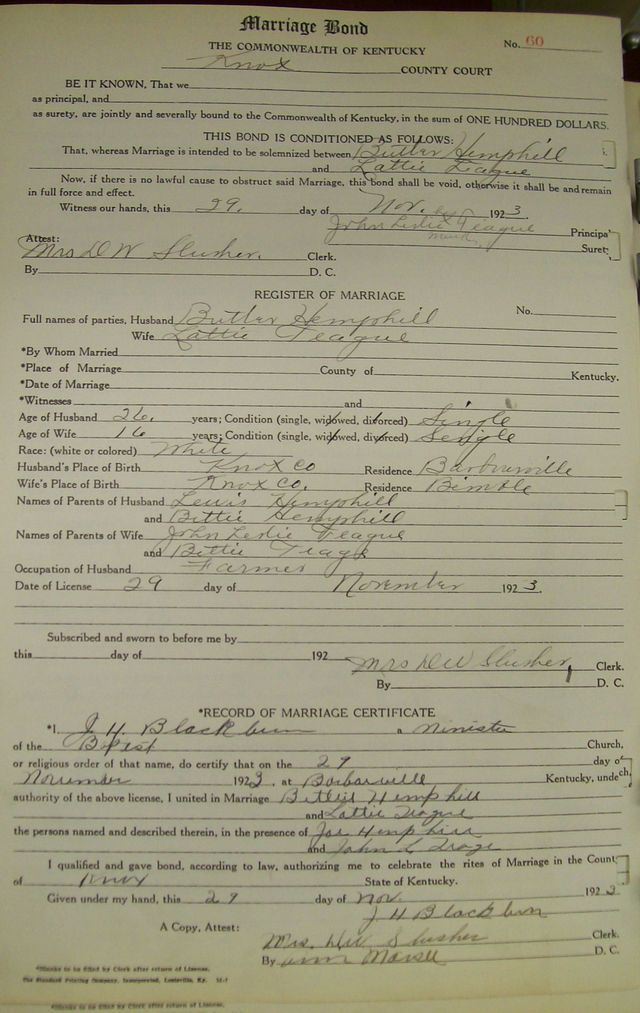 Marriage Bond
THE COMMONWEALTH OF KENTUCKY No. 60
Knox COUNTY COURT
BE IT KNOWN, That we
as principal, and
as surety, are jointly and severally bound to the Commonwealth of Kentucky, in the sum of ONE HUNDRED DOLLARS.
THIS BOND IS CONDITIONED AS FOLLOWS:
That, whereas Marriage is intended to be solemnized between Butler Hemphill
and Lattie Teague
Now, if there is no lawful cause to obstruct said Marriage, this bond shall be void, otherwise it shall be and remain
in full force and effect.
Witness our hands, this 29. day of Nov. 1923.
John Leslie Teague Principa
mark Suret
Attest:
Mrs D W Slusher. Clerk.
By D. C.
REGISTER OF MARRIAGE
No.
Full names of parties, Husband Butler Hemphill
Wife Lattie Teague
*By Whom Married
*Place of Marriage County of Kentucky.
*Date of Marriage
*Witnesses and
Age of Husband 26. years; Condition (single, widowed, divorced) Single
Age of Wife 16 years; Condition (single, widowed, divorced) Single
Race: (white or colored) White
Husband's Place of Birth Knox Co Residence Barbourville
Wife's Place of Birth Knox Co. Residence Bimble
Names of Parents of Husband Lewis Hemphill
and Bittie Hemphill
Names of Parents of Wife John Leslie Teague
and Bittie Teage
Occupation of Husband Farmer
Date of License 29 day of November 1923.
Subscribed and sworn to before me by
this day of 192
Mrs D W Slusher, Clerk.
By D. C.
*RECORD OF MARRIAGE CERTIFICATE
*I, J. H. Blackburn a Minister
of the Baptist Church,
or religious order of that name, do certify that on the 29 day o
November 1923, at Barbarville Kentucky, unde
authority of the above license, I united in Marriage Hemphill
and Lattie Teague
the persons named and described therein, in the presence of Joe Hemphill
and John L Teage
I qualified and gave bond, according to law, authorizing me to celebrate the rites of Marriage in the Count
of Knox State of Kentucky.
Given under my hand, this 29 day of Nov. 1923
J H Blackburn
A Copy, Attest:
Mrs. D W Slusher Clerk.
By D. C.
*Blanks to be filled by Clerk after return of License.
The Standard Printing Company, Incorporated, Louisville, Ky.
*Blanks to be filled by Clerk after return of License.